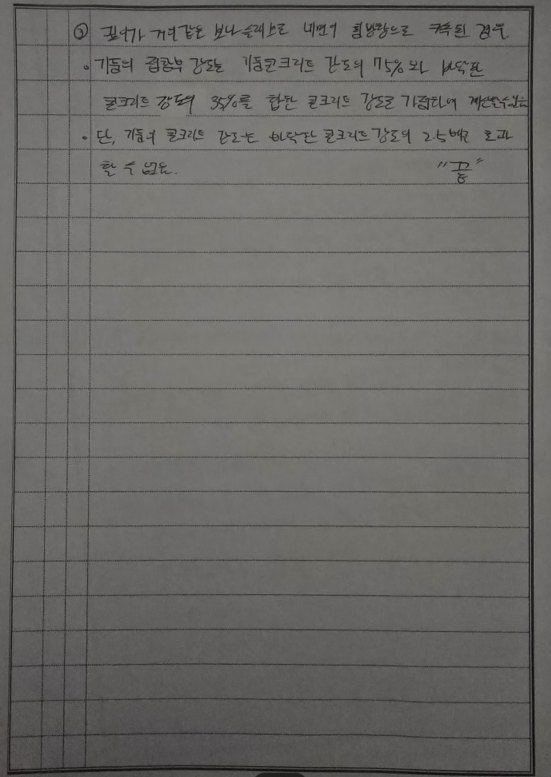 ③ 깊이가 거의같은 보나 슬래브로 4면이 횡방향으로 구속된 경우
• 기둥의 접합부 강도는 기둥콘크리트 강도의 75%와 바닥판
콘크리트 강도의 35%를 합한 콘크리트 강도로 가정하여 계산할수있음
• 단, 기둥의 콘크리트 강도는 바닥판 콘크리트 강도의 2.5배를 초과
할 수 없음. "끝"